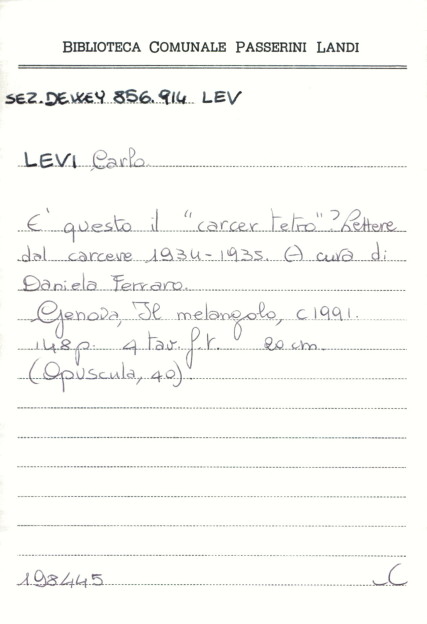 BIBLIOTECA COMUNALE PASSERINI LANDI
SEZ. DEWEY 856.914 LEV
LEVI Carlo
E' questo il "carcer tetro"? Lettere
dal carcere 1934-1935. (A cura di
Daniela Ferraro.
Genova, Il melangolo, c1991.
148p. 4 tav. f.t. 20 cm.
(Opuscula, 40)
198445